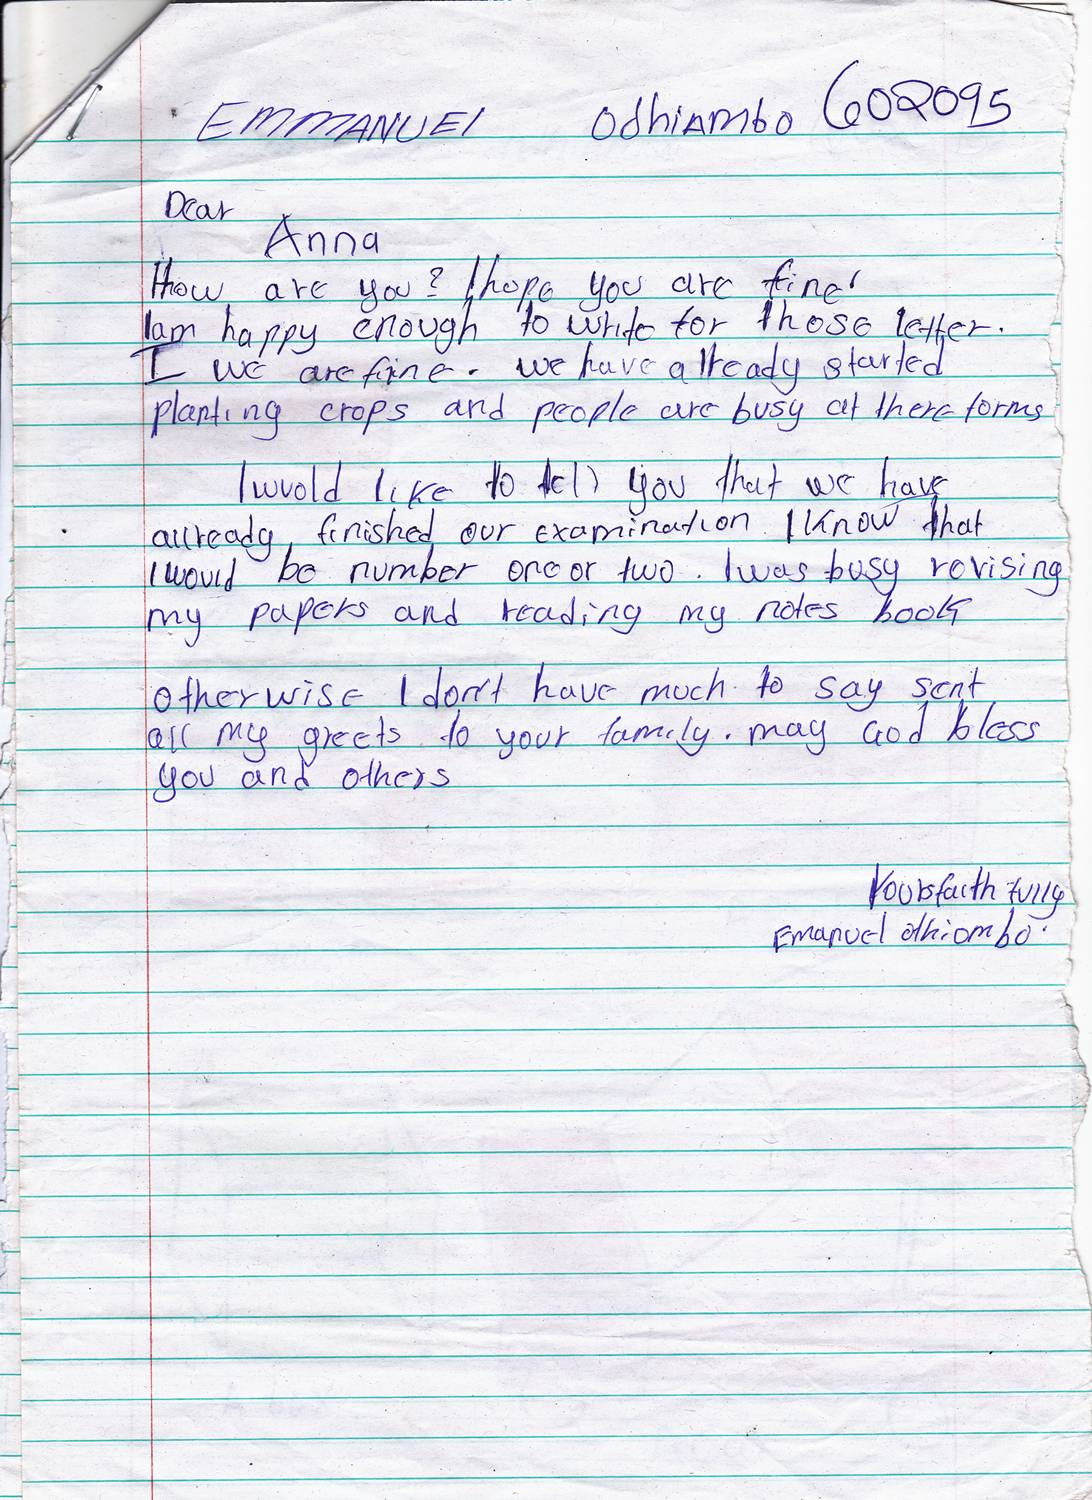 EMMANUEl Odhiambo 602095
Dear
Anna
How are you? I hope you are fine!
Iam happy enough to write for those letter.
I we are fine. we have already started
planting crops and people are busy at there forms
I wuold like to tell you that we have
allready, finished our examination I Know that
I would be number one or two. I was busy revising
my papers and reading my notes book
otherwise I don't have much to say sent
all my greets to your family. may God bless
you and others
Yours faith fully
Emanuel othiombo.